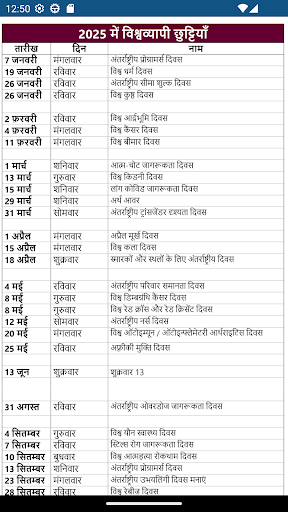 12:50
2025 में विश्वव्यापी छुट्टियाँ
तारीख दिन नाम
7 जनवरी मंगलवार अंतर्राष्ट्रीय प्रोग्रामर्स दिवस
19 जनवरी रविवार विश्व धर्म दिवस
26 जनवरी रविवार अंतर्राष्ट्रीय सीमा शुल्क दिवस
26 जनवरी रविवार विश्व कुष्ठ दिवस
2 फ़रवरी रविवार विश्व आर्द्रभूमि दिवस
4 फ़रवरी मंगलवार विश्व कैंसर दिवस
11 फ़रवरी मंगलवार विश्व बीमार दिवस
1 मार्च शनिवार आत्म-चोट जागरूकता दिवस
13 मार्च गुरुवार विश्व किडनी दिवस
15 मार्च शनिवार लांग कोविड जागरूकता दिवस
29 मार्च शनिवार अर्थ आवर
31 मार्च सोमवार अंतर्राष्ट्रीय ट्रांसजेंडर दृश्यता दिवस
1 अप्रैल मंगलवार अप्रैल मूर्ख दिवस
15 अप्रैल मंगलवार विश्व कला दिवस
18 अप्रैल शुक्रवार स्मारकों और स्थलों के लिए अंतर्राष्ट्रीय दिवस
4 मई रविवार अंतर्राष्ट्रीय परिवार समानता दिवस
8 मई गुरुवार विश्व डिम्बग्रंथि कैंसर दिवस
8 मई गुरुवार विश्व रेड क्रॉस और रेड क्रिसेंट दिवस
12 मई सोमवार अंतर्राष्ट्रीय नर्स दिवस
20 मई मंगलवार विश्व ऑटोइम्यून / ऑटोइन्फ्लेमेटरी आर्थराइटिस दिवस
25 मई रविवार अफ्रीकी मुक्ति दिवस
13 जून शुक्रवार शुक्रवार 13
31 अगस्त रविवार अंतर्राष्ट्रीय ओवरडोज जागरूकता दिवस
4 सितम्बर गुरुवार विश्व यौन स्वास्थ्य दिवस
7 सितम्बर रविवार स्टिल्स रोग जागरूकता दिवस
10 सितम्बर बुधवार विश्व आत्महत्या रोकथाम दिवस
13 सितम्बर शनिवार अंतर्राष्ट्रीय प्रोग्रामर्स दिवस
23 सितम्बर मंगलवार अंतर्राष्ट्रीय उभयलिंगी दिवस मनाएं
28 सितम्बर रविवार विश्व रेबीज दिवस